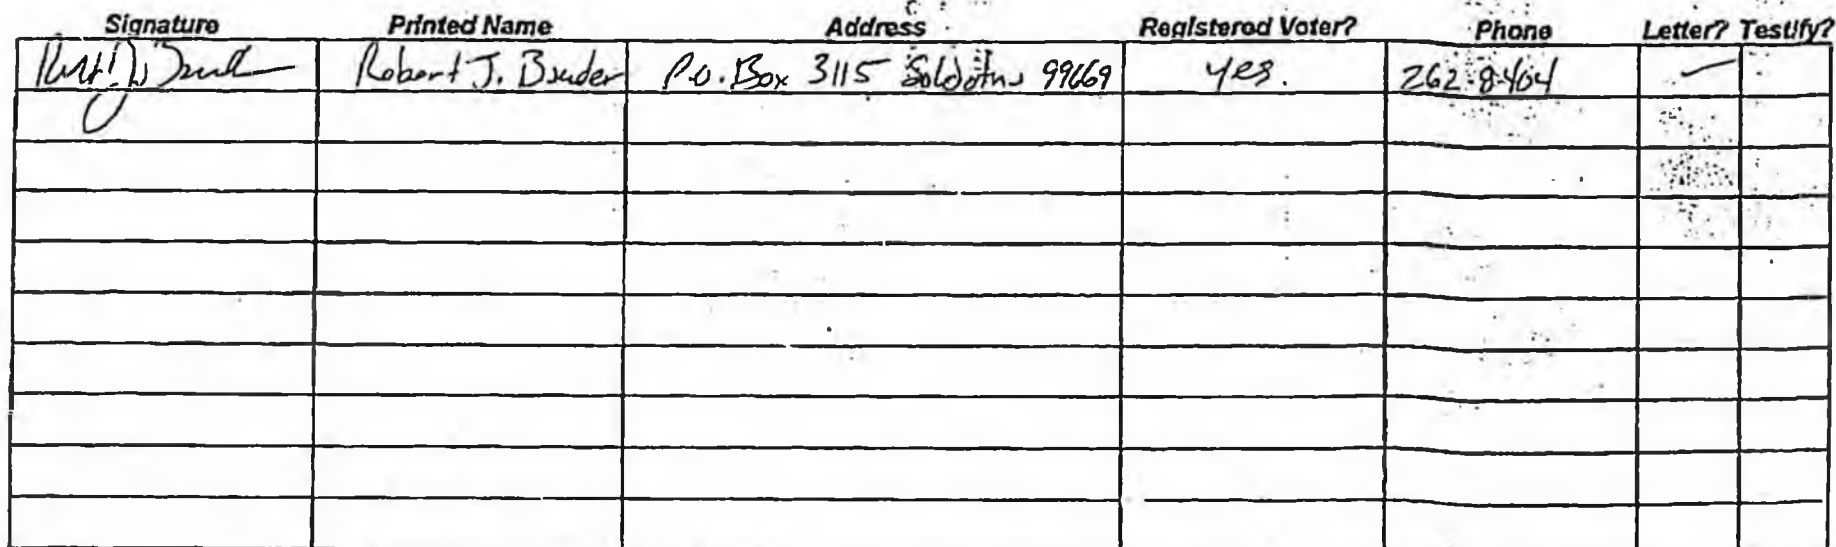 Signature Printed Name Address Registered Voter? Phone Letter? Testify?
Robert J. Bruder P.O. Box 3115 Soldotna 99669 yes. 262-8404